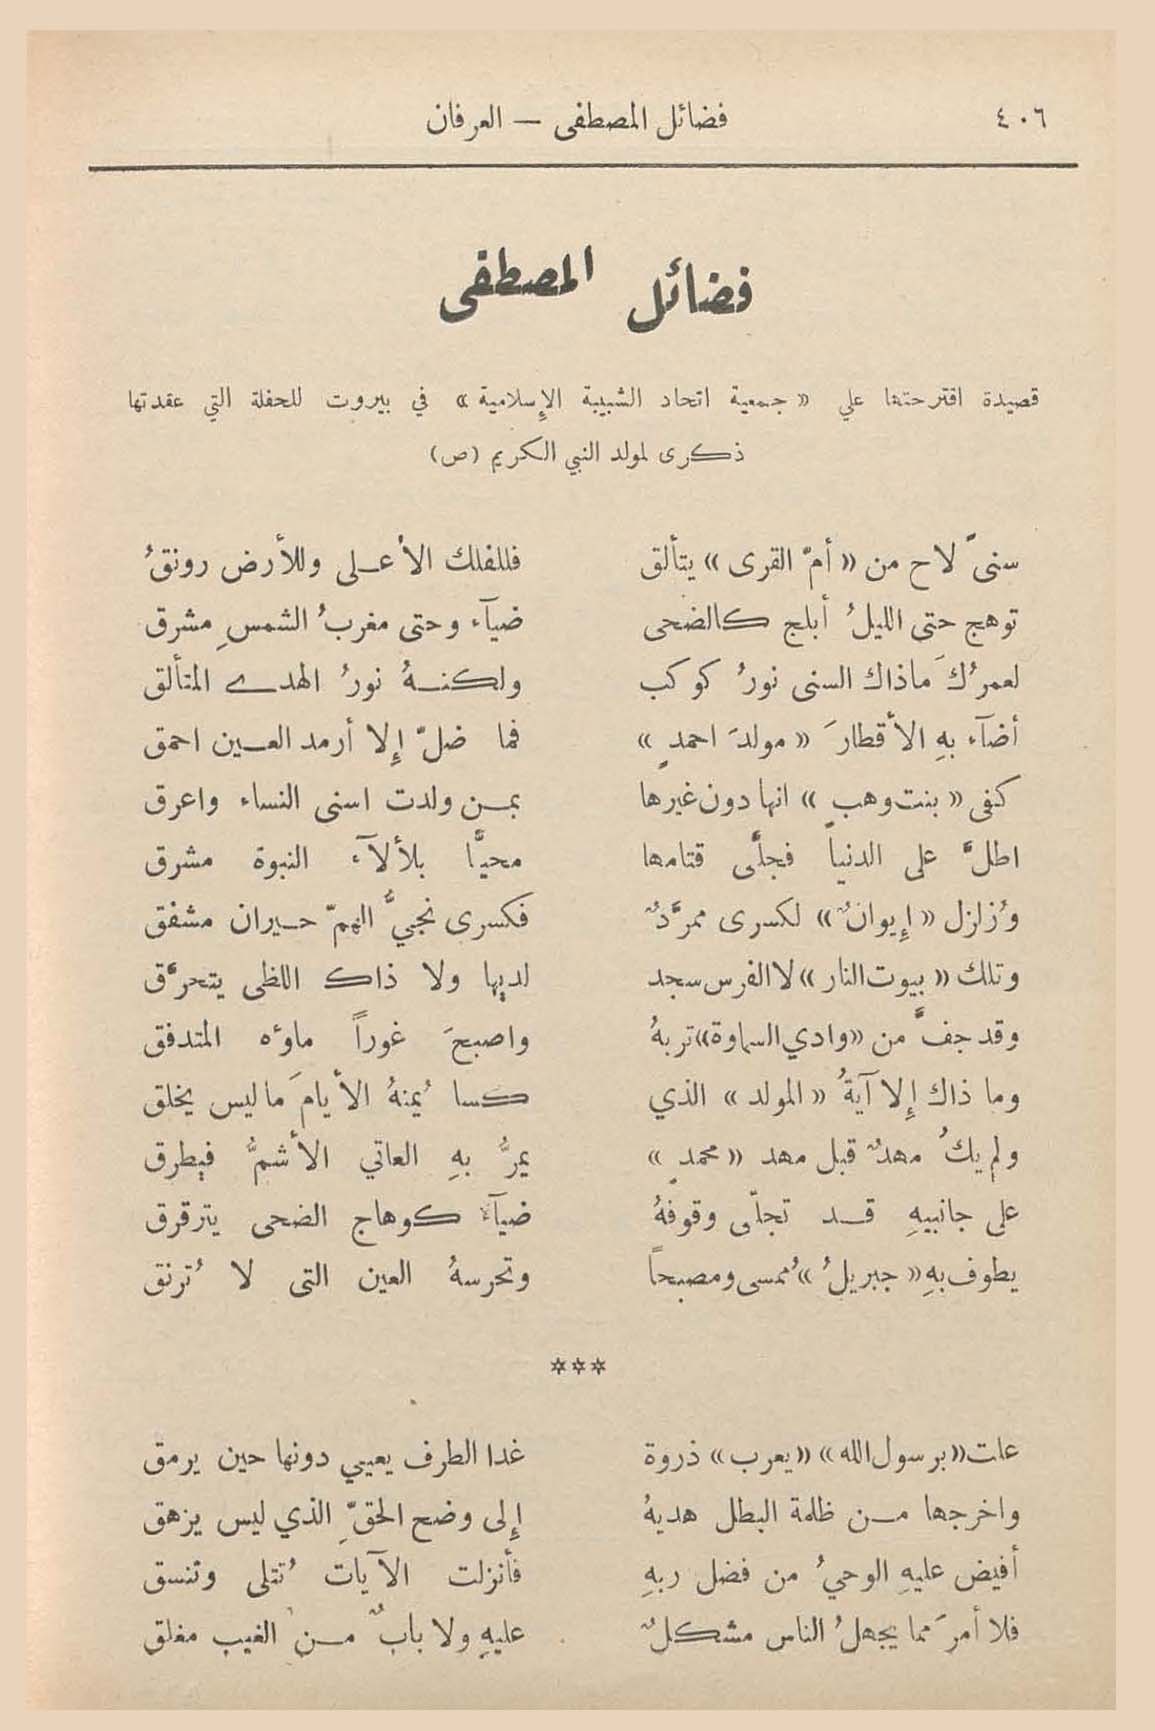 ٤٠٦ فضائل المصطفى — العرفان
فضائل المصطفى
قصيدة اقترحتها علي « جمعية اتحاد الشبيبة الإسلامية » في بيروت للحفلة التي عقدتها
ذكرى لمولد النبي الكريم (ص)
سنىً لاح من « أمّ القرى » يتألق فللفلك الأعلى وللأرض رونقُ
توهج حتى الليلُ أبلج كالضحى ضيآء وحتى مغربُ الشمسِ مشرق
لعمرُكَ ماذاك السنى نورُ كوكب ولكنهُ نورُ الهدى المتألق
أضآء بهِ الأقطارَ « مولدَ احمدٍ » فما ضلّ إلا أرمد العين احمق
كفى « بنت وهبٍ » انها دون غيرها بمن ولدت اسنى النساء واعرق
اطلَّ على الدنيا فجلَّى قتامها محيًّا بلألآء النبوة مشرق
وُزلزل « إيوانٌ » لكسرى ممرَّدٌ فكسرى نجيُّ الهمّ حيران مشفق
وتلك « بيوت النار » لا الفرس سجد لديها ولا ذاك اللظى يتحرَّق
وقد جفَّ من «وادي السماوة» تربهُ واصبحَ غوراً ماؤه المتدفق
وما ذاك إلا آيةُ « المولد » الذي كسا يُمنهُ الأيامَ ماليس يخلق
ولم يكُ مهدٌ قبل مهد « محمدٍ » يمرُّ بهِ العاتي الأشمُّ فيطرق
على جانبيهِ قد تجلّى وقوفهُ ضيآءً كوهاج الضحى يترقرق
يطوف بهِ « جبريلُ » مُمسى ومصبحاً وتحرسهُ العين التى لا تُرنق
***
علت « برسول الله » « يعرب » ذروة غدا الطرف يعيي دونها حين يرمق
واخرجها من ظلمة البطل هديهُ إلى وضح الحقِّ الذي ليس يزهق
أفيض عليهِ الوحيُ من فضل ربهِ فأنزلت الآيات تُتلى وتنسق
فلا أمرَ مما يجهلُ الناس مشكلٌ عليهِ ولا بابٌ من الغيب مغلق